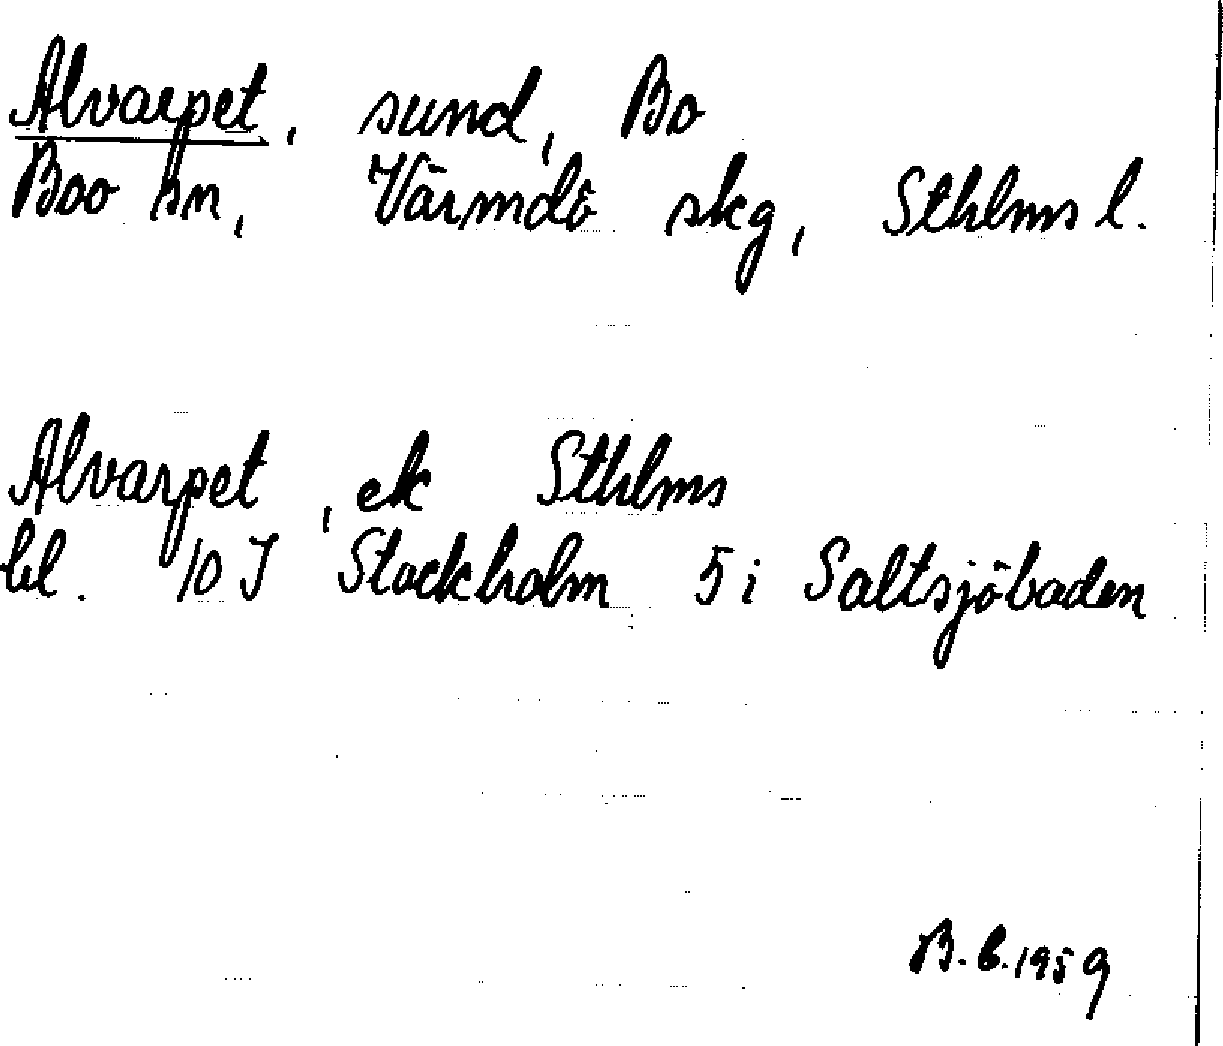 Alvarpet, sund, Bo
Boo sn, Värmdö skg, Sthlms l.
Alvarpet, ek Sthlms
bl. 10 J Stockholm 5 i Saltsjöbaden
B. 6. 1959